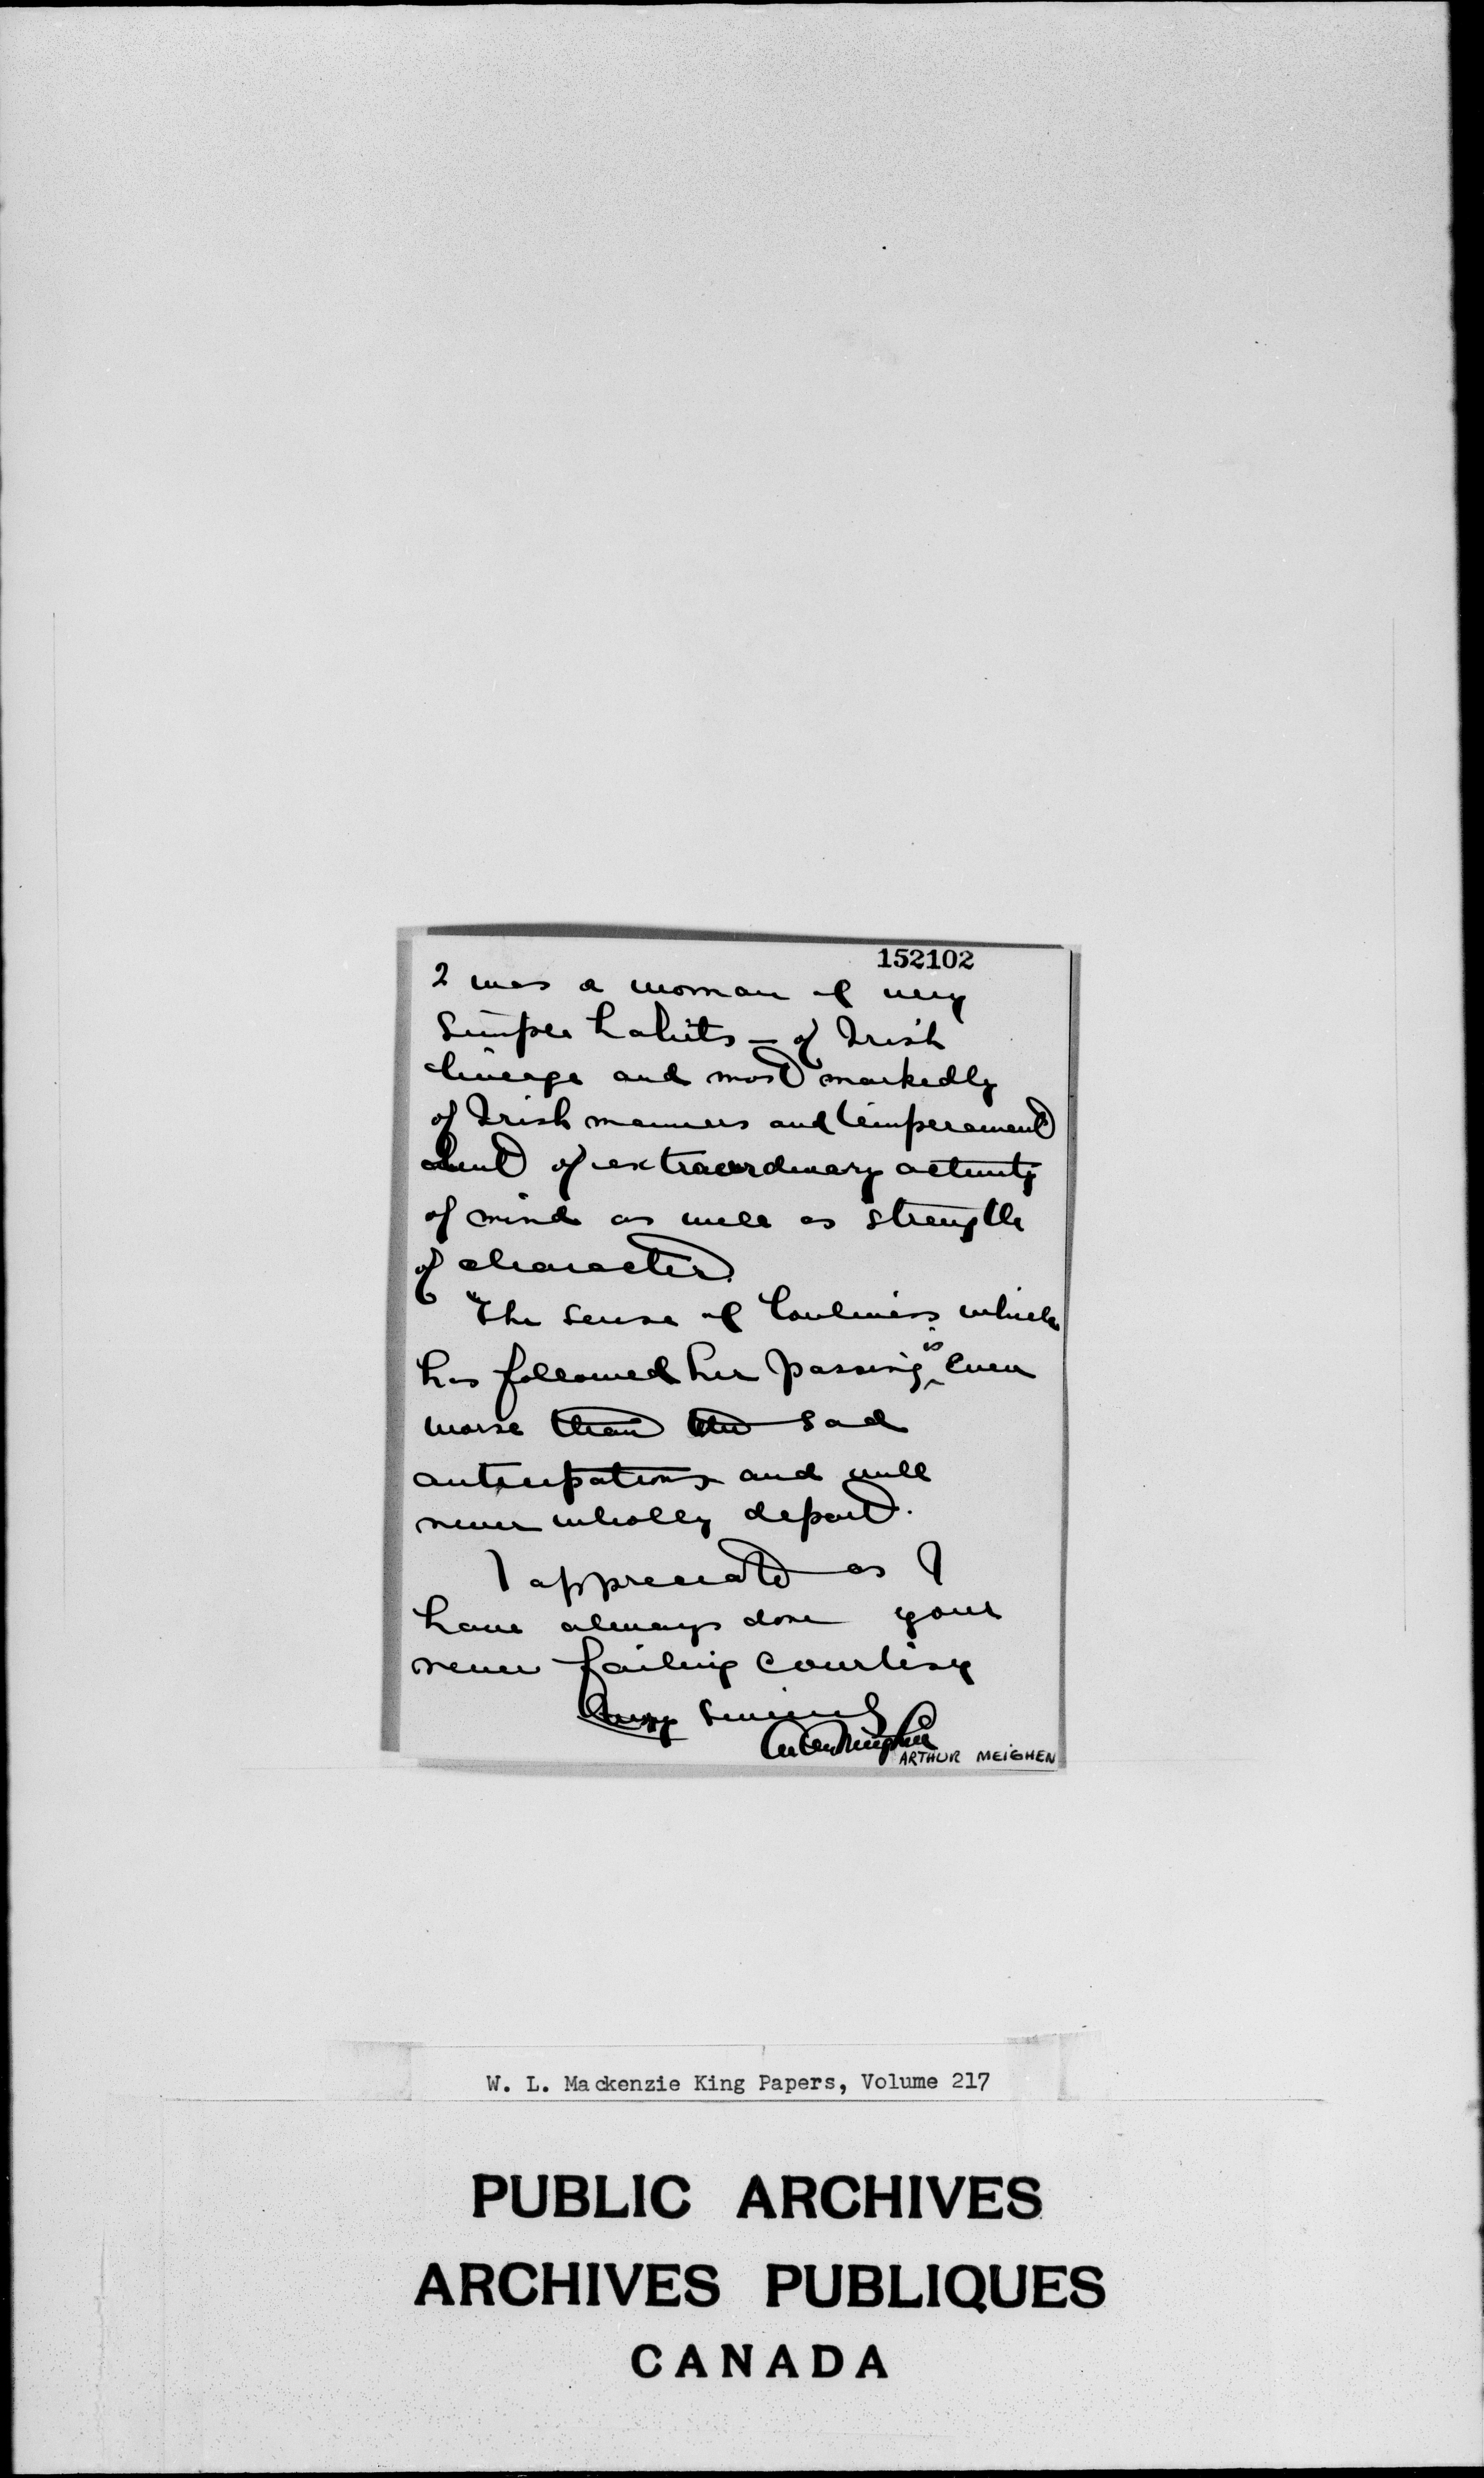 152102
2 was a woman of very
simple habits – of Irish
lineage and most markedly
of Irish manners and temperament
of extraordinary activity
of mind as well as strength
of character.
The sense of lonliness which
has followed her passing is even
worse than the sad
anticipations and will
never wholly depart.
I appreciate as I
have always done your
never failing courtesy
Very Sincerely
Arthur Meighen
ARTHUR MEIGHEN
W. L. Mackenzie King Papers, Volume 217
PUBLIC ARCHIVES
ARCHIVES PUBLIQUES
CANADA